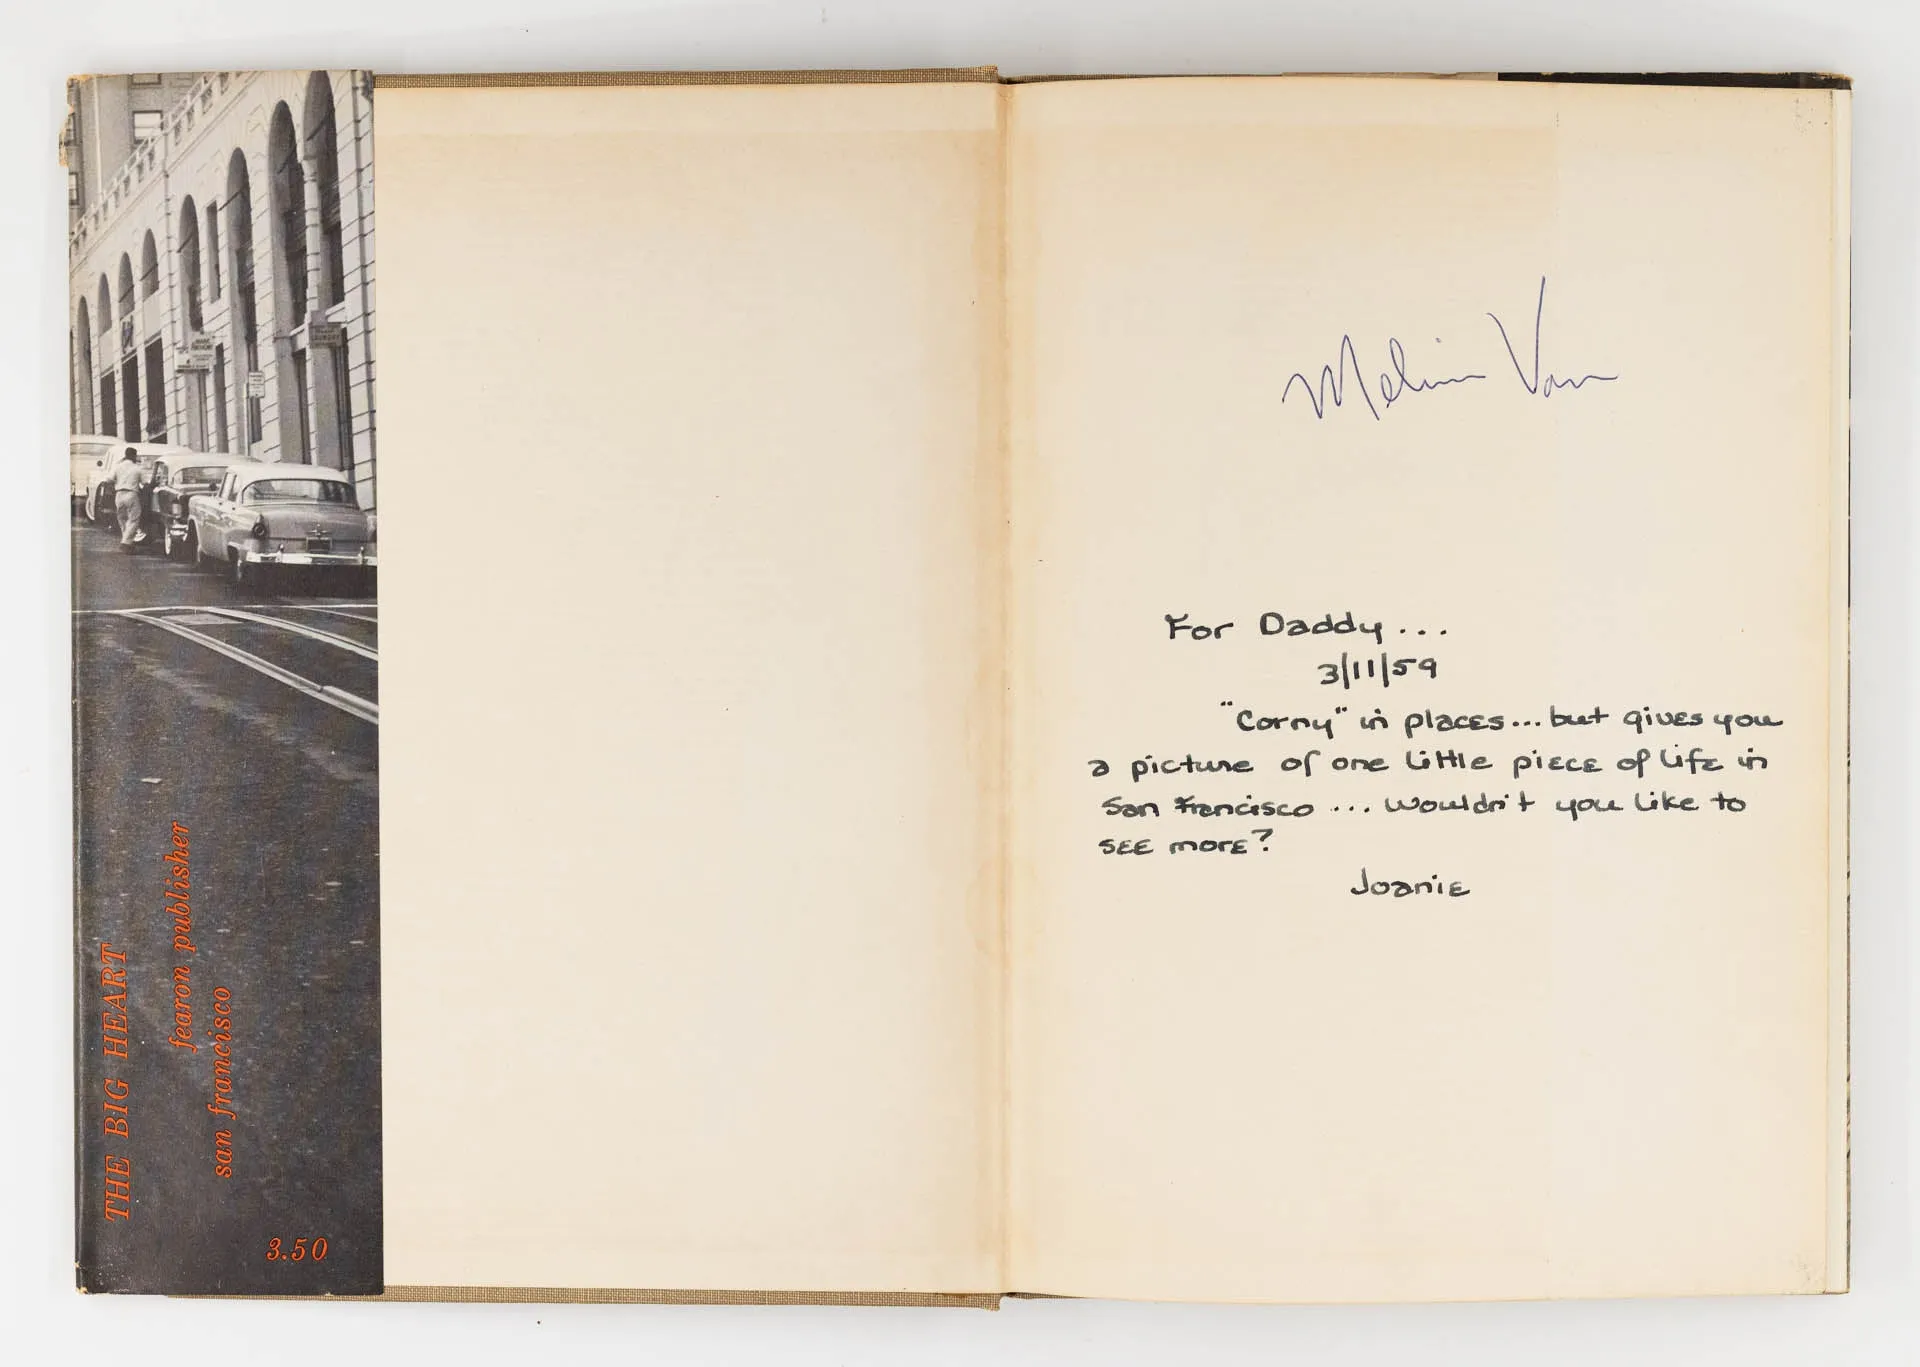 THE BIG HEART
fearon publisher
san francisco
3.50
Melvin Van
For Daddy...
3/11/59
"Corny" in places...but gives you
a picture of one little piece of life in
San Francisco ... wouldn't you like to
see more?
Joanie